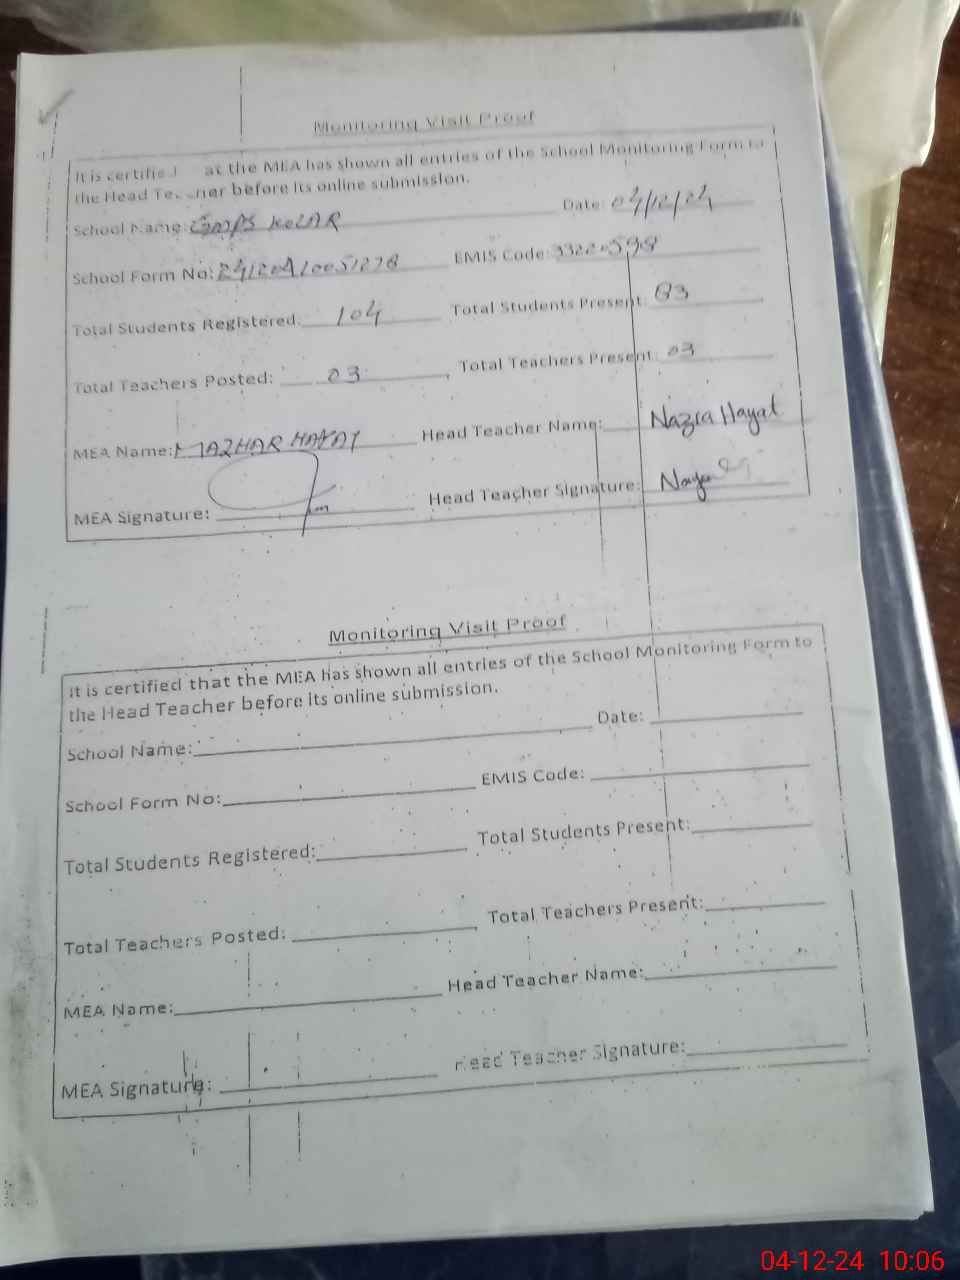 Monitoring Visit Proof
It is certified at the MEA has shown all entries of the School Monitoring Form to
the Head Teacher before its online submission.
School Name: KOLAR Date: 04/12/24
School Form No: EMIS Code:
Total Students Registered: 104 Total Students Present: 83
Total Teachers Posted: 03 Total Teachers Present: 03
MEA Name: MAZHAR HAYAT Head Teacher Name: Nazia Hayat
MEA Signature: Head Teacher Signature:
Monitoring Visit Proof
It is certified that the MEA has shown all entries of the School Monitoring Form to
the Head Teacher before its online submission.
School Name: Date:
School Form No: EMIS Code:
Total Students Registered: Total Students Present:
Total Teachers Posted: Total Teachers Present:
MEA Name: Head Teacher Name:
MEA Signature: Head Teacher Signature:
04-12-24 10:06